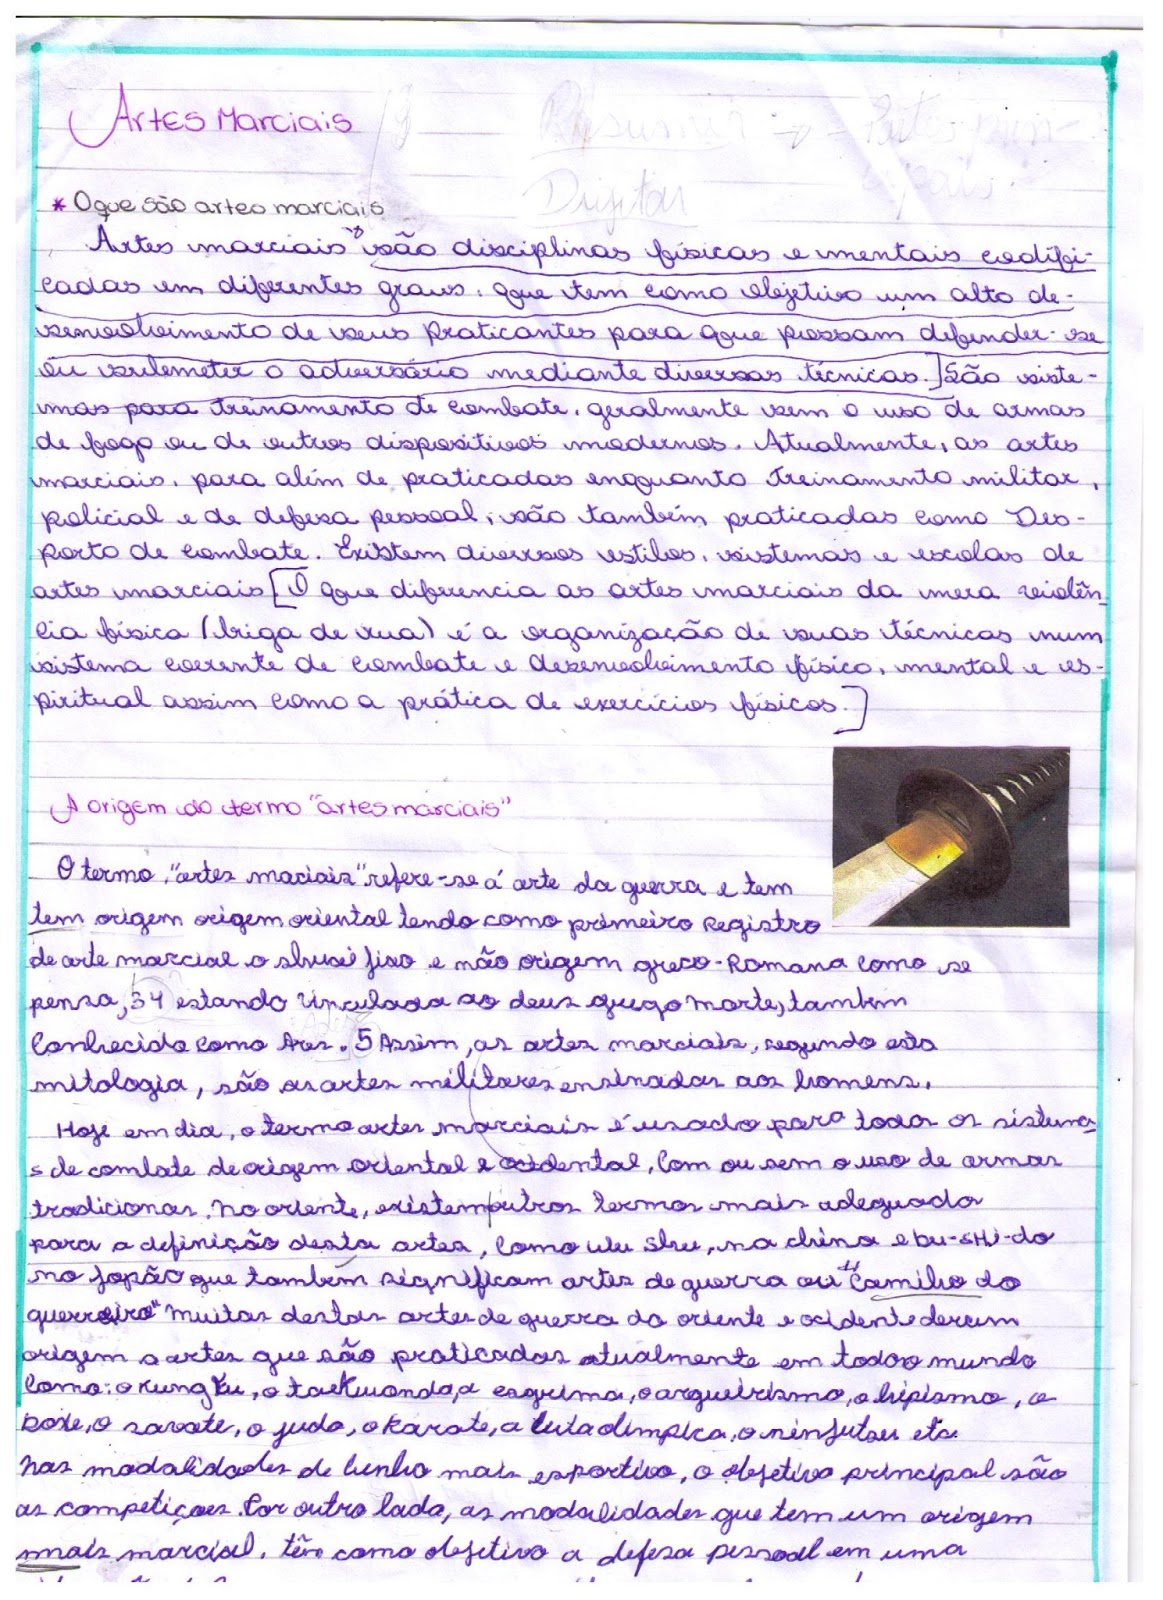 Artes Marciais
Resumir → - Partes prin-
cipais.
Digitar
* O que são artes marciais
Artes marciais são disciplinas físicas e mentais codifi-
cadas em diferentes graus, que tem como objetivo um alto de-
senvolvimento de seus praticantes para que possam defender-se
ou submeter o adversário mediante diversas técnicas.] São siste-
mas para treinamento de combate, geralmente sem o uso de armas
de fogo ou de outros dispositivos modernos. Atualmente, as artes
marciais, para além de praticadas enquanto treinamento militar,
policial e de defesa pessoal, são também praticadas como Des-
porto de combate. Existem diversos estilos, sistemas e escolas de
artes marciais [O que diferencia as artes marciais da mera violên-
cia física (briga de rua) é a organização de suas técnicas num
sistema coerente de combate e desenvolvimento físico, mental e es-
piritual assim como a prática de exercícios físicos.]
A origem do termo "artes marciais"
O termo, "artes maciais" refere-se á arte da guerra e tem
tem origem origem oriental tendo como primeiro Registro
de arte marcial o fiso e não origem greco-Romana como se
pensa, 34 estando vinculada ao deus grego marte, também
conhecido como Ares. 5 Assim, as artes marciais, segundo esta
mitologia, são as artes militares ensinadas aos homens.
Hoje em dia, o termo artes marciais é usado para todos os sistema
s de combate de origem oriental e ocidental, com ou sem o uso de armas
tradicionas. no oriente, existem outros termos mais adequado
para a definição desta artes, como wu shu, na china e bu-SHi-do
no japão que também significam artes de guerra ou "Camiho do
guerreiro" muitas destas artes de guerra do oriente e ocidente deram
origem a artes que são praticadas atualmente em todoo mundo
como: o kung Fu, o taekwondo, a esgrima, o arqueirismo, o hipismo, o
boxe, o savate, o judo, o karate, a luta olimpica, o ninjutsu etc.
nas modalidades de cunho mais esportivo, o objetivo principal são
as competiçoes. Por outro lado, as modalidades que tem um origem
mais marcial, têm como objetivo a defesa pessoal em uma